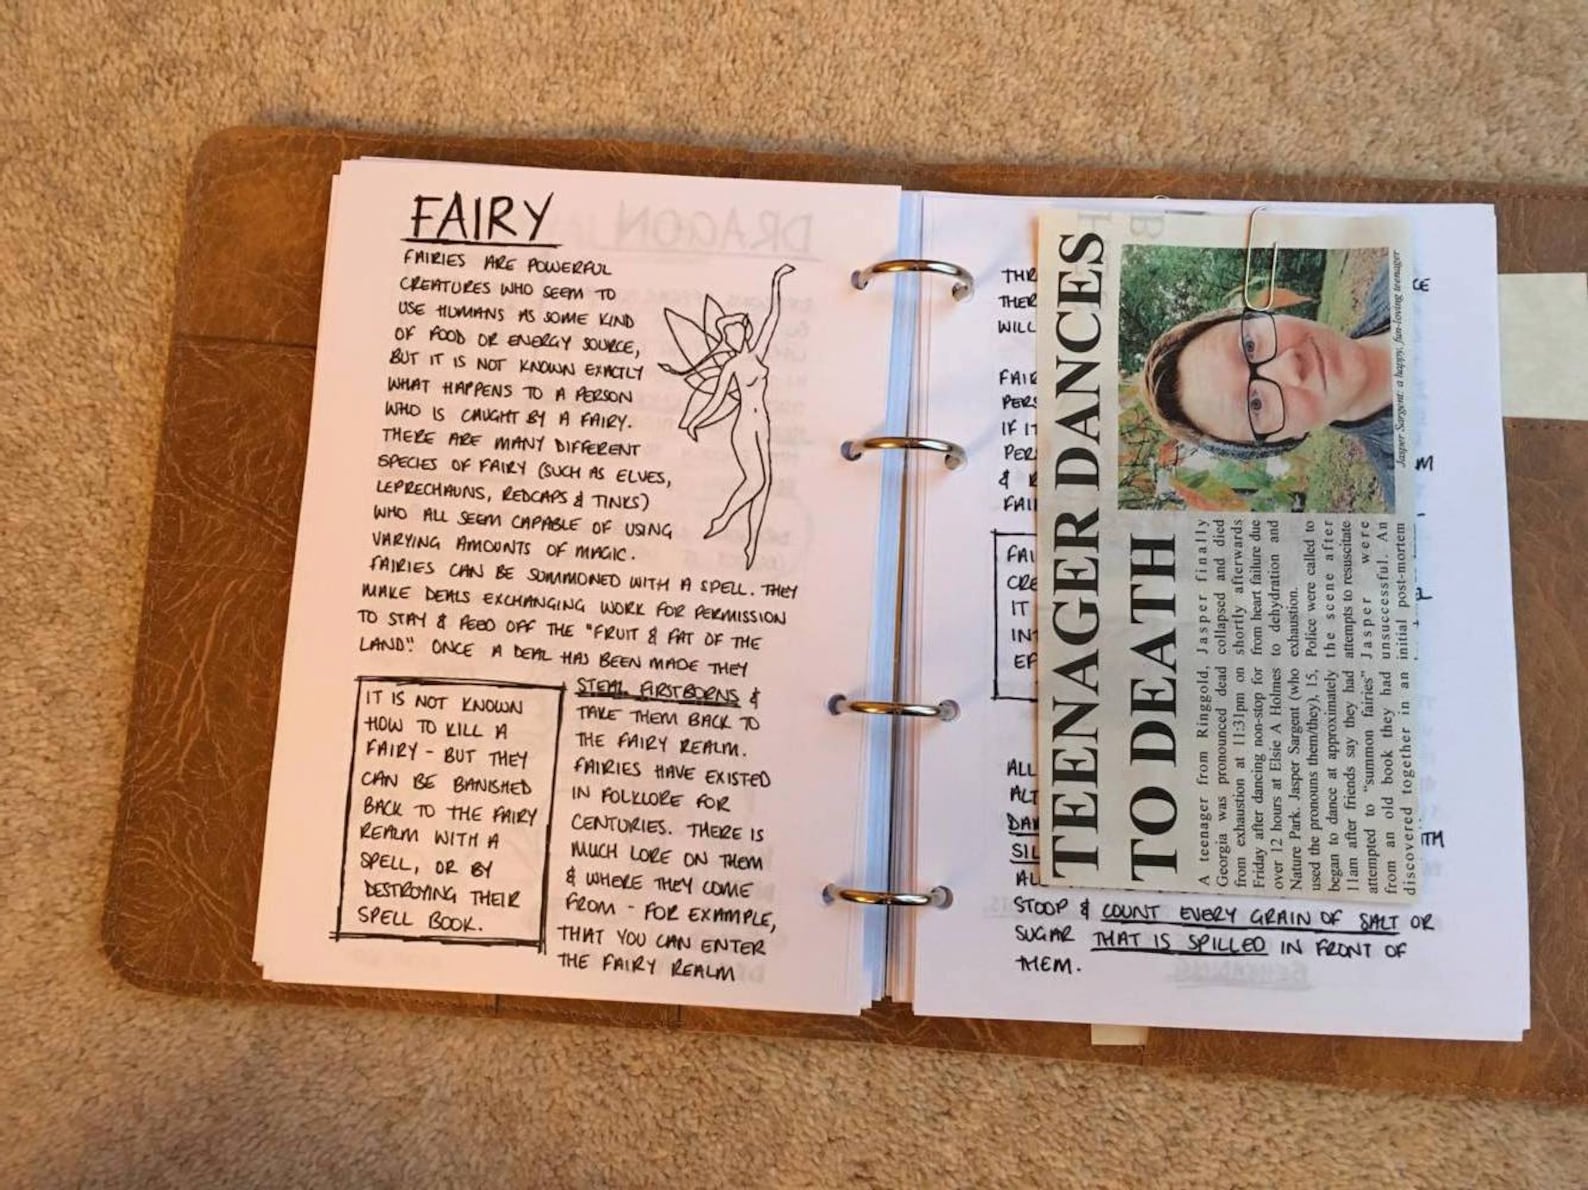 FAIRY
FAIRIES ARE POWERFUL
CREATURES WHO SEEM TO
USE HUMANS AS SOME KIND
OF FOOD OR ENERGY SOURCE,
BUT IT IS NOT KNOWN EXACTLY
WHAT HAPPENS TO A PERSON
WHO IS CAUGHT BY A FAIRY.
THERE ARE MANY DIFFERENT
SPECIES OF FAIRY (SUCH AS ELVES,
LEPRECHAUNS, REDCAPS & TINKS)
WHO ALL SEEM CAPABLE OF USING
VARYING AMOUNTS OF MAGIC.
FAIRIES CAN BE SUMMONED WITH A SPELL. THEY
MAKE DEALS EXCHANGING WORK FOR PERMISSION
TO STAY & FEED OFF THE "FRUIT & FAT OF THE
LAND". ONCE A DEAL HAS BEEN MADE THEY
STEAL FIRSTBORNS &
TAKE THEM BACK TO
THE FAIRY REALM.
FAIRIES HAVE EXISTED
IN FOLKLORE FOR
CENTURIES. THERE IS
MUCH LORE ON THEM
& WHERE THEY COME
FROM - FOR EXAMPLE,
THAT YOU CAN ENTER
THE FAIRY REALM
IT IS NOT KNOWN
HOW TO KILL A
FAIRY - BUT THEY
CAN BE BANISHED
BACK TO THE FAIRY
REALM WITH A
SPELL, OR BY
DESTROYING THEIR
SPELL BOOK.
DRAGON
WILL
IF IT
&
IT
ALL
STOOP & COUNT EVERY GRAIN OF SALT OR
SUGAR THAT IS SPILLED IN FRONT OF
THEM.
TEENAGER DANCES
TO DEATH
Jasper Sargent: a happy, fun-loving teenager
A teenager from Ringgold,
Georgia was pronounced dead
from exhaustion at 11:31pm on
Friday after dancing non-stop for
over 12 hours at Elsie A Holmes
Nature Park. Jasper Sargent (who
used the pronouns them/they), 15,
began to dance at approximately
11am after friends say they had
attempted to "summon fairies"
from an old book they had
discovered together in an
Jasper finally
collapsed and died
shortly afterwards
from heart failure due
to dehydration and
exhaustion.
Police were called to
the scene after
attempts to resuscitate
Jasper were
unsuccessful. An
initial post-mortem